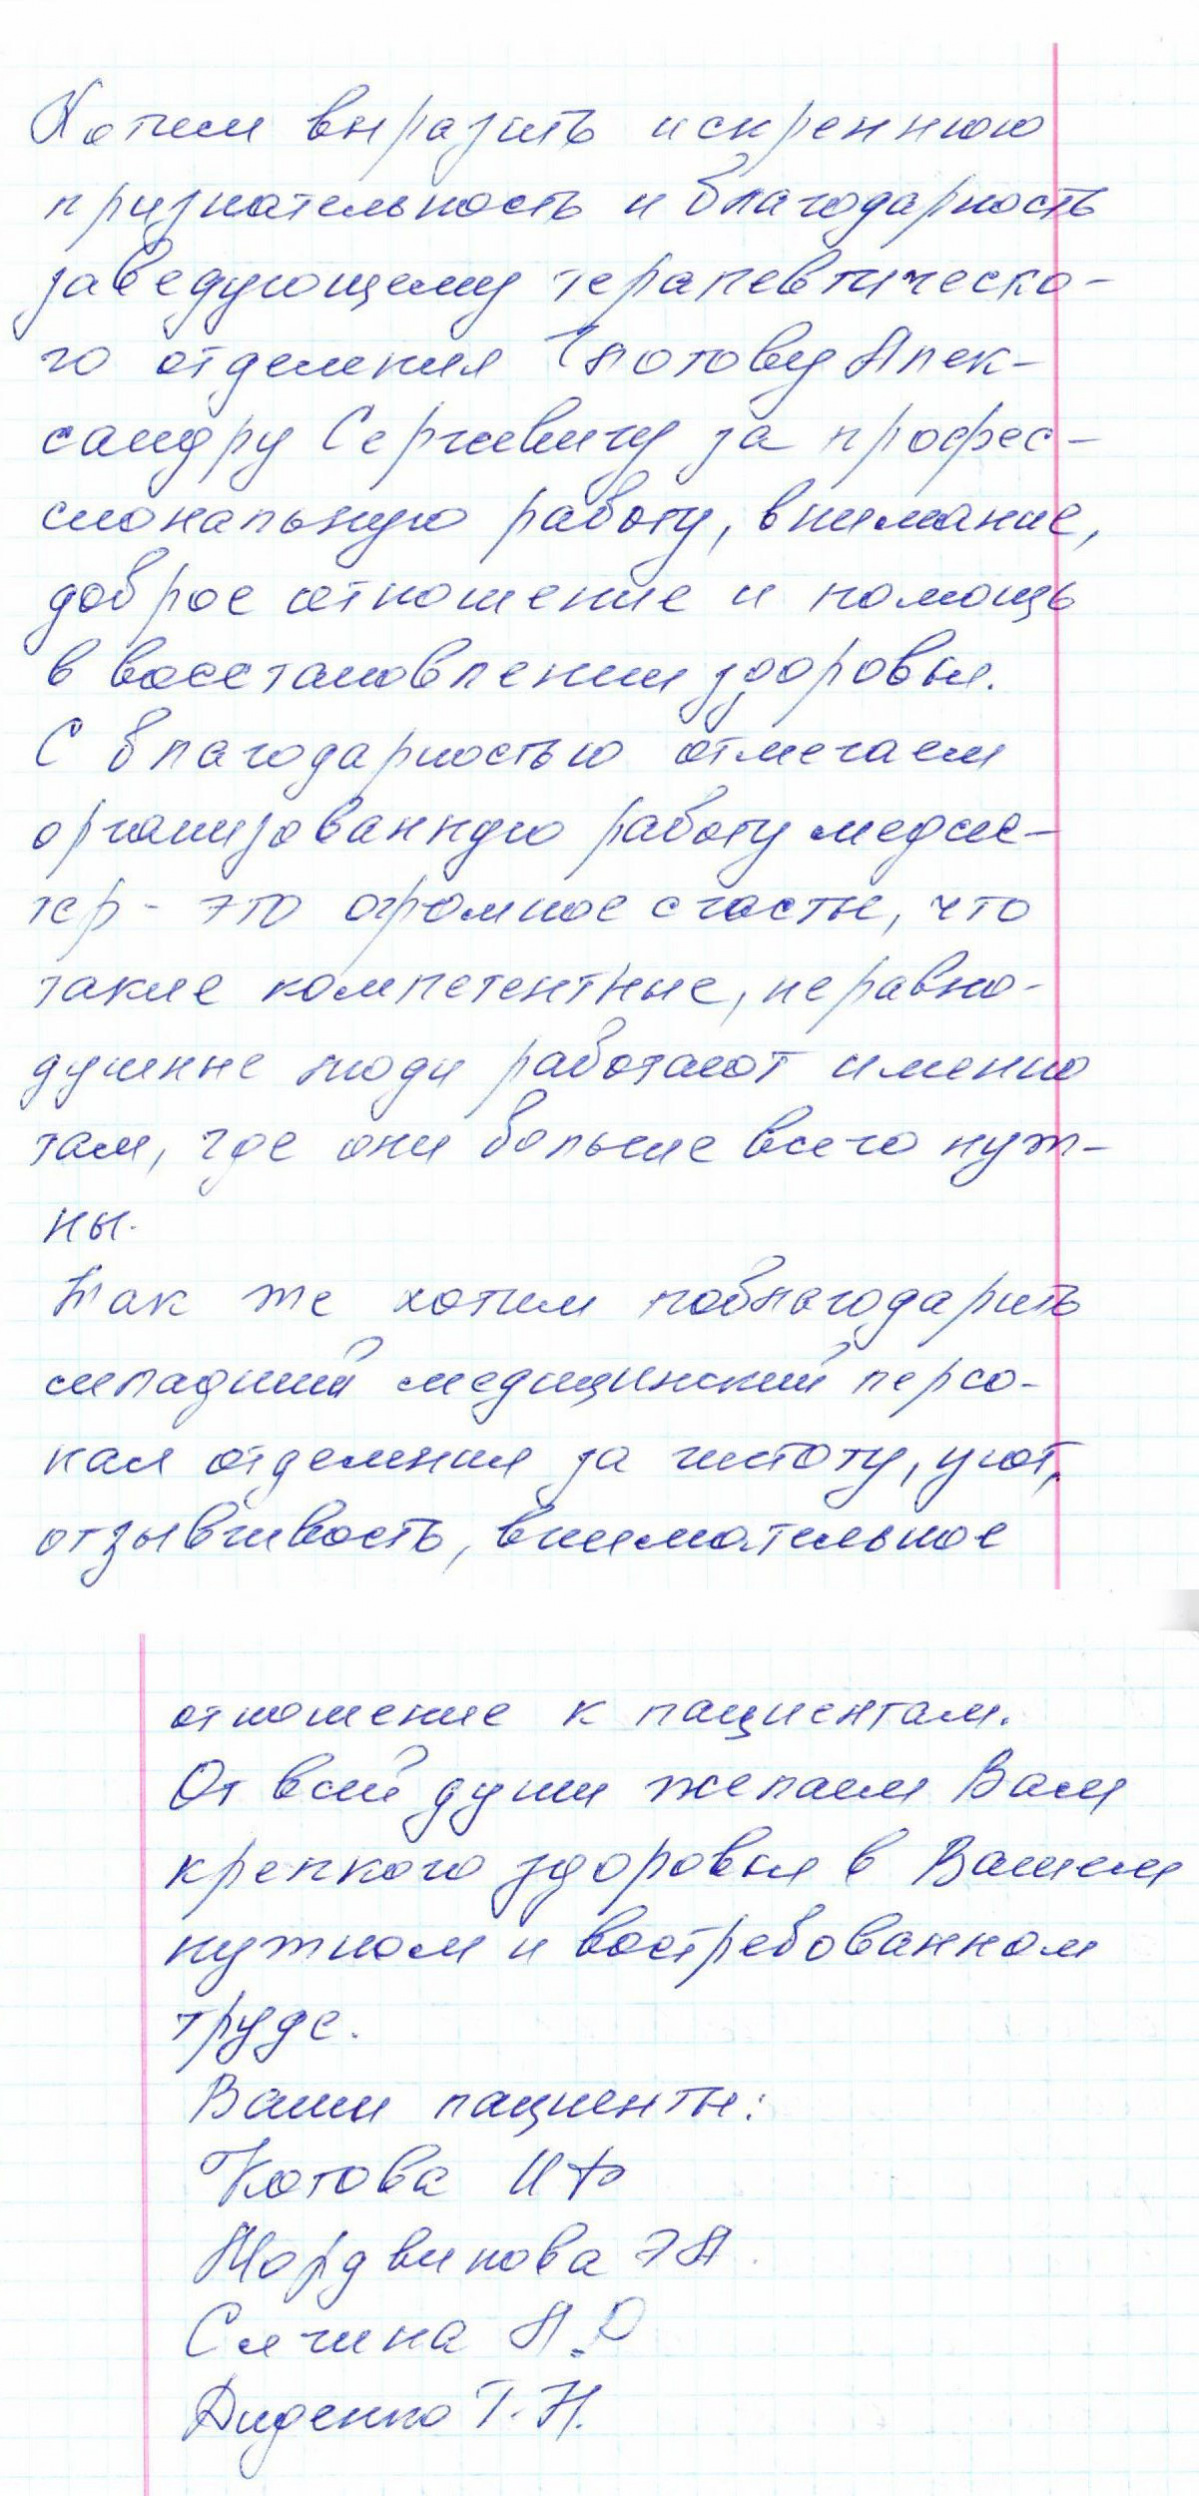 Хотим выразить искреннюю
признательность и благодарность
заведующему терапевтическо-
го отделения Алек-
сандру Сергеевичу за профес-
сиональную работу, внимание,
доброе отношение и помощь
в восстановлении здоровья.
С благодарностью отмечаем
организованную работу медсес-
тер - это огромное счастье, что
такие компетентные, неравно-
душные люди работают именно
там, где они больше всего нуж-
ны.
Так же хотим поблагодарить
младший медицинский персо-
нал отделения за чистоту, уют,
отзывчивость, внимательное
отношение к пациентам.
От всей души желаем Вам
крепкого здоровья в Вашем
нужном и востребованном
труде.
Ваши пациенты:
Котова И Ф
Мордвинова Э А.
Сячина А.
Диденко Т. Н.